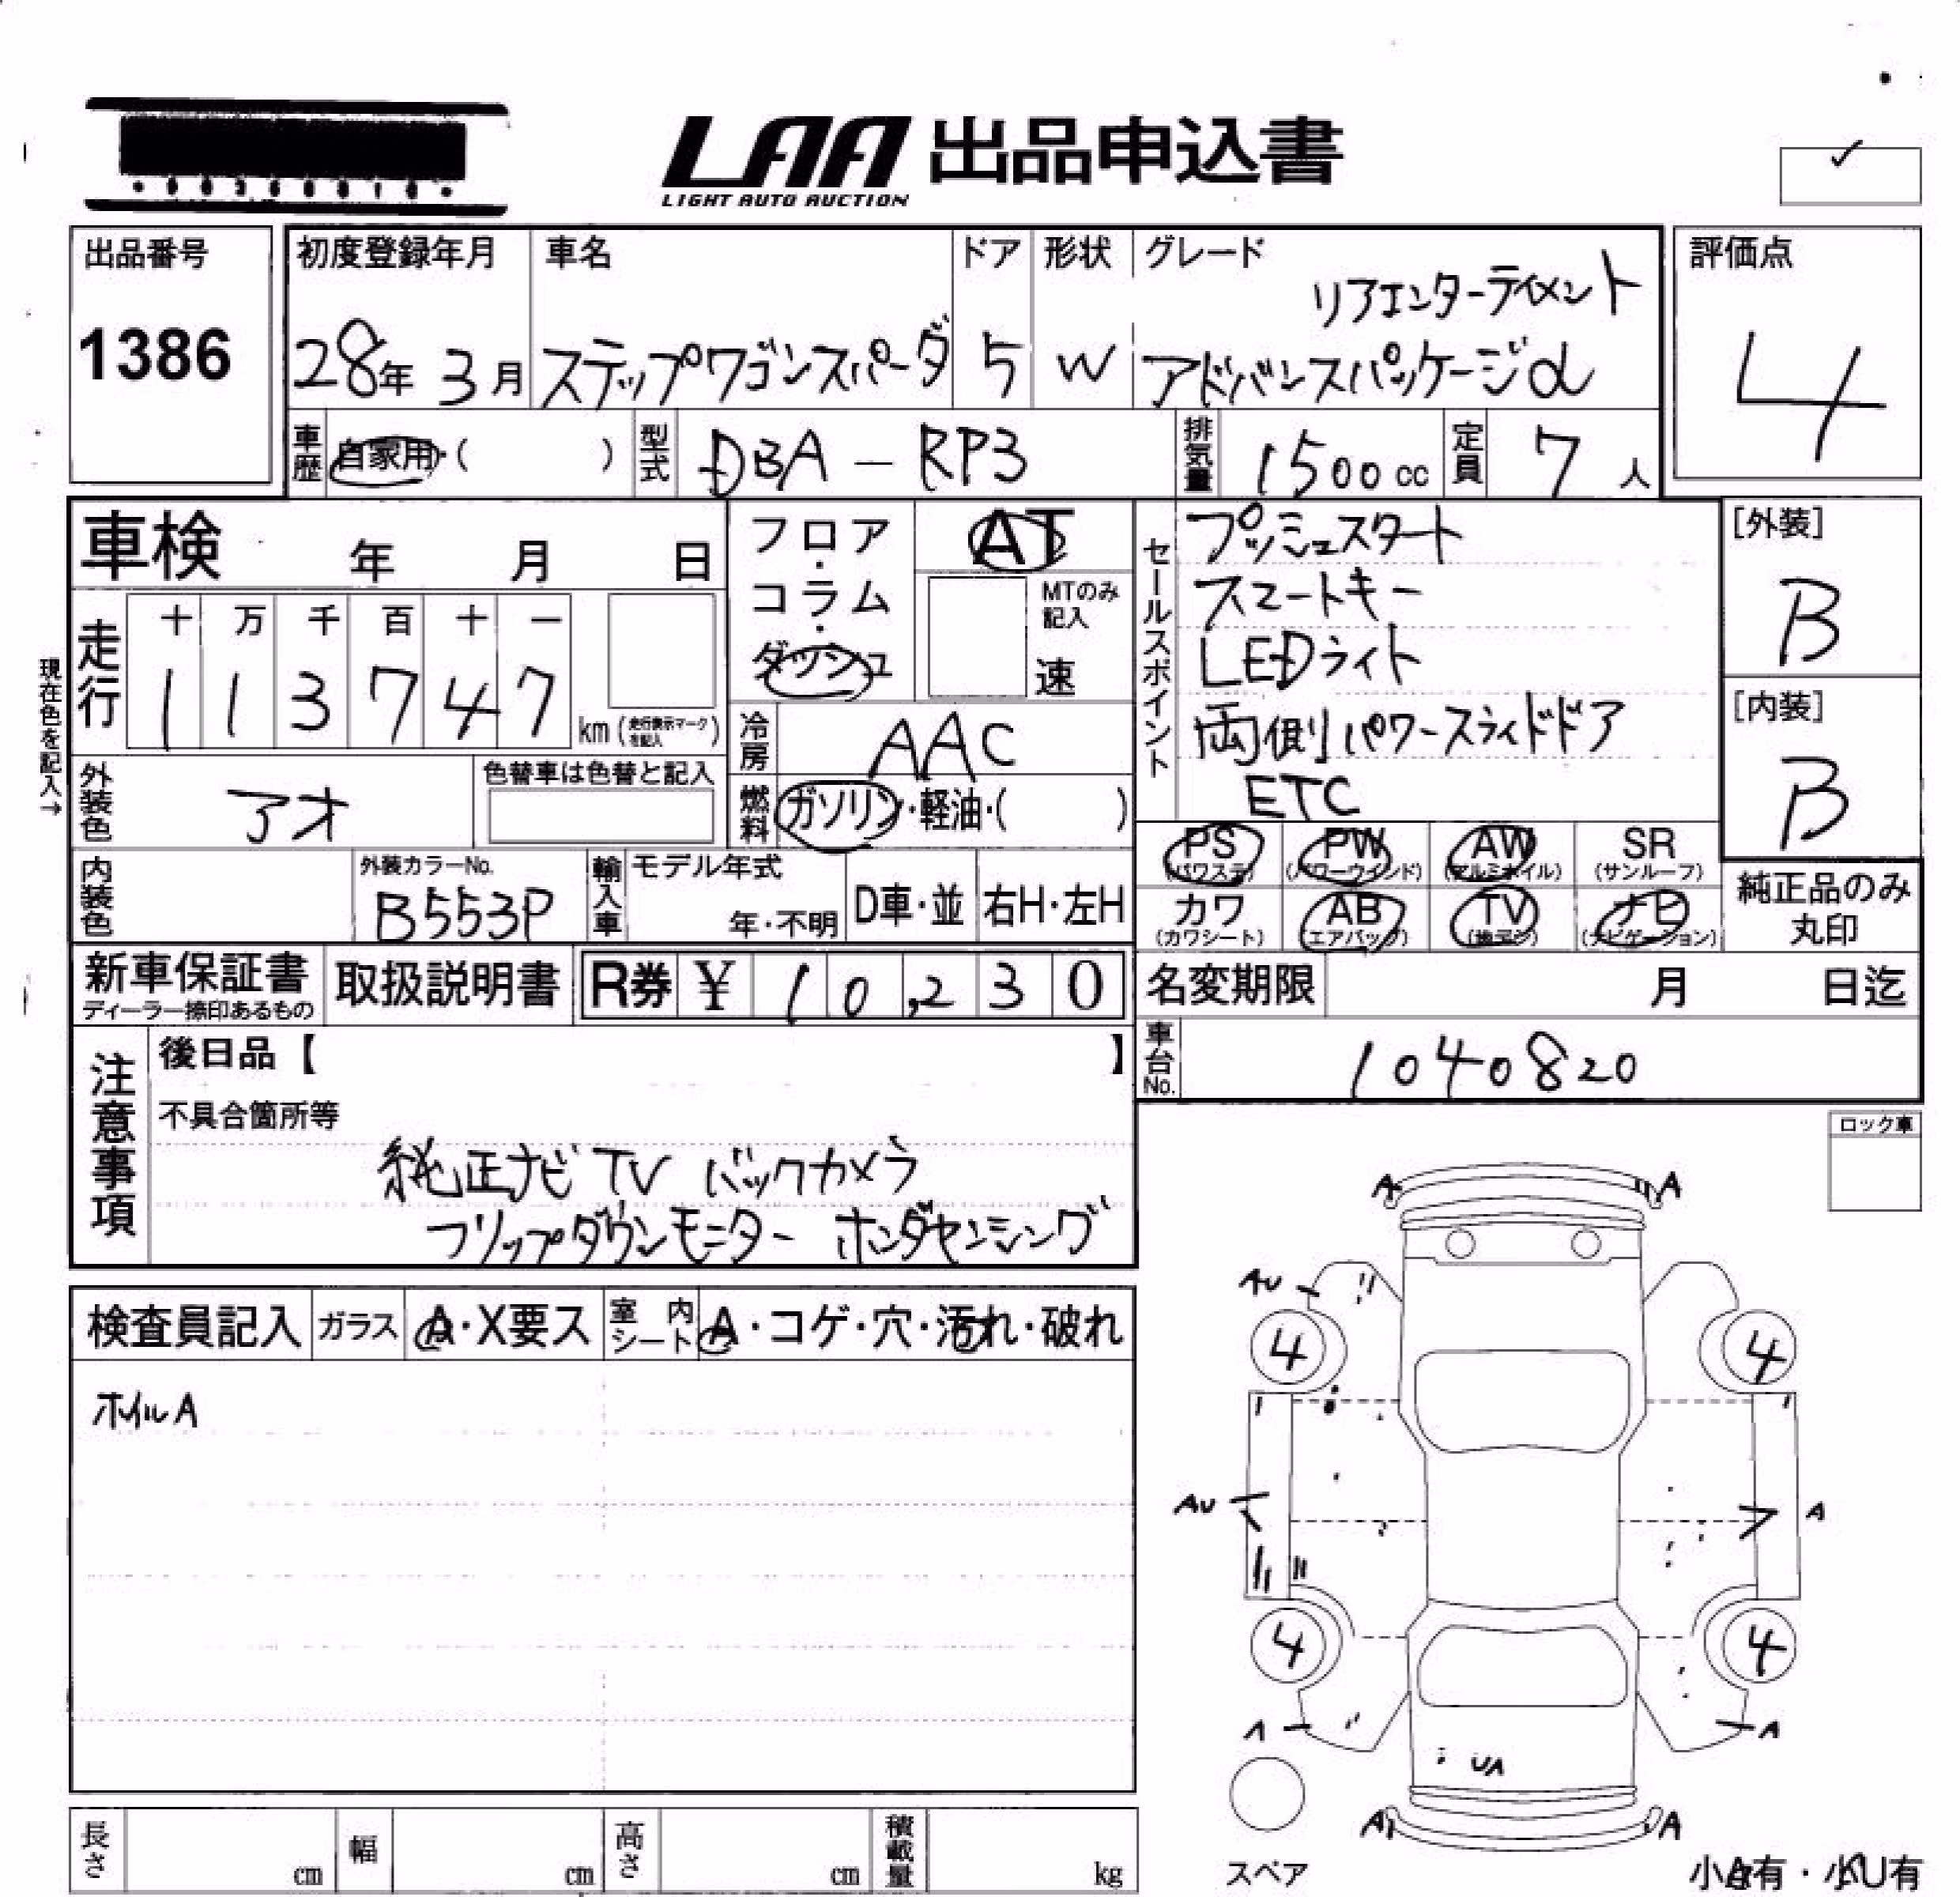 LAA 出品申込書
LIGHT AUTO AUCTION
✓
出品番号
1386
初度登録年月
28年 3月
車名
ステップワゴンスパーダ
ドア
5
形状
W
グレード
リアエンターテイメント
アドバンスパッケージα
評価点
4
車歴 自家用・( )
型式 DBA-RP3
排気量 1500cc
定員 7人
車検 年 月 日
走行
十 万 千 百 十 一
1 1 3 7 4 7 km (走行表示マークを記入)
現在色を記入→
外装色 アオ
色替車は色替と記入
内装色
外装カラーNo.
B553P
フロア・コラム・ダッシュ
AT
MTのみ記入
速
冷房 AAC
燃料 ガソリン・軽油・( )
輸入車 モデル年式
年・不明
D車・並 右H・左H
セールスポイント
プッシュスタート
スマートキー
LEDライト
両側パワースライドドア
ETC
[外装]
B
[内装]
B
PS (パワステ) PW (パワーウインド) AW (アルミホイル) SR (サンルーフ)
カワ (カワシート) AB (エアバッグ) TV (地デジ) ナビ (ナビゲーション)
純正品のみ
丸印
新車保証書
ディーラー捺印あるもの
取扱説明書
R券 ¥ 10,230
名変期限 月 日迄
車台No. 1040820
注意事項
後日品【 】
不具合箇所等
純正ナビ TV バックカメラ
フリップダウンモニター ホンダセンシング
検査員記入 ガラス A・X要ス 室内シート A・コゲ・穴・汚れ・破れ
ホイルA
ロック車
A A
AU
4 4
AU A
4 4
A A
UA
A A
スペア
小A有・小U有
長さ cm 幅 cm 高さ cm 積載量 kg